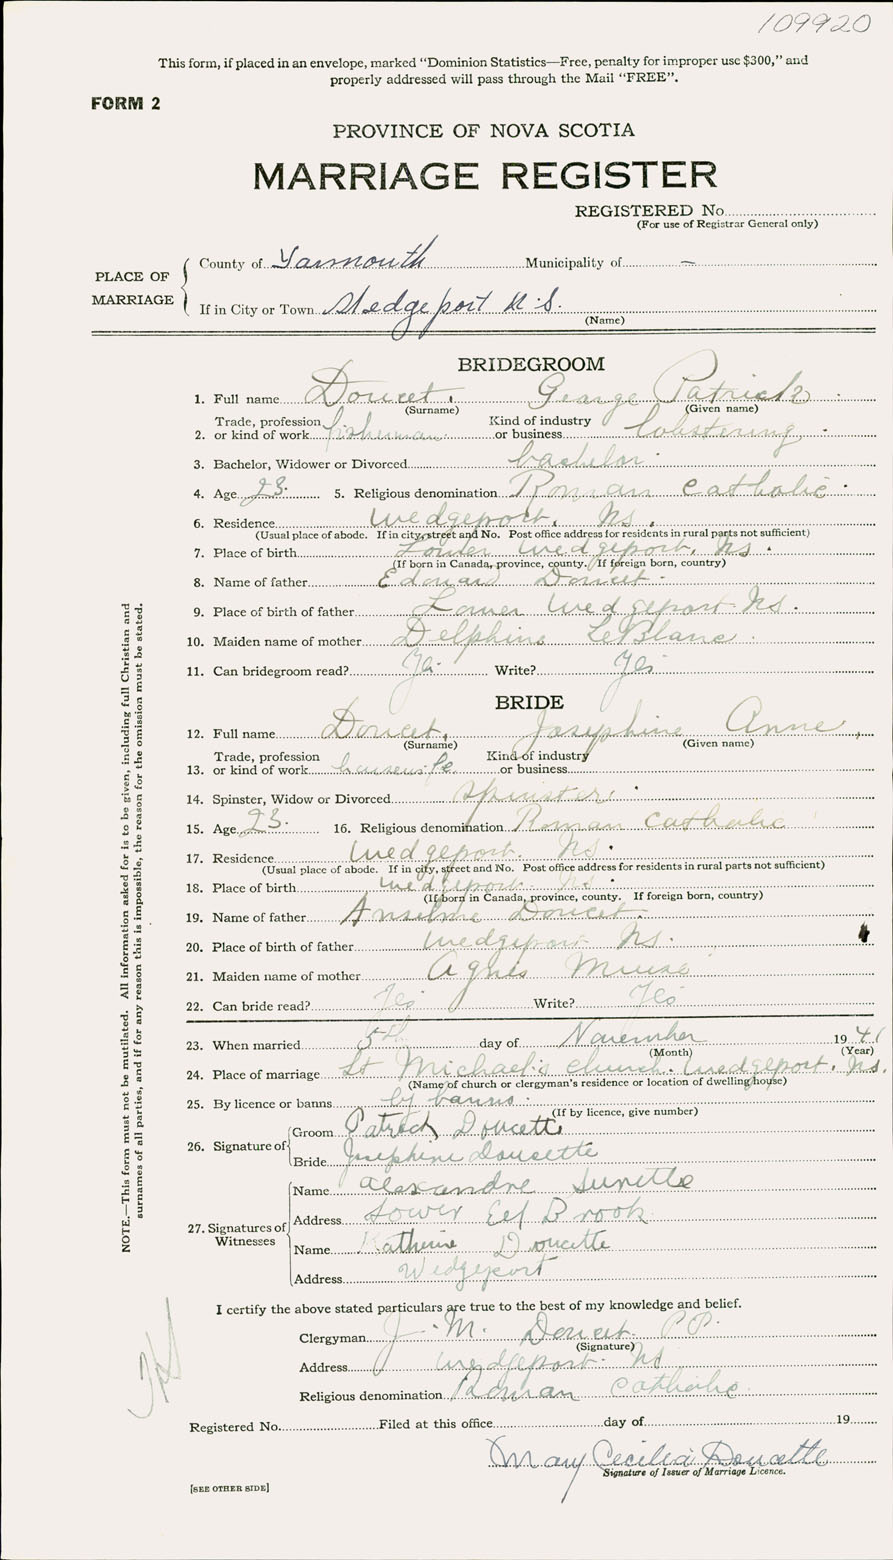 109920
This form, if placed in an envelope, marked “Dominion Statistics—Free, penalty for improper use $300,” and
properly addressed will pass through the Mail “FREE”.
FORM 2
PROVINCE OF NOVA SCOTIA
MARRIAGE REGISTER
REGISTERED No.
(For use of Registrar General only)
PLACE OF MARRIAGE
County of Yarmouth Municipality of —
If in City or Town Wedgeport N.S.
(Name)
BRIDEGROOM
1. Full name Doucet, George Patrick
(Surname) (Given name)
2. Trade, profession or kind of work fisherman Kind of industry or business lobstering
3. Bachelor, Widower or Divorced bachelor
4. Age 23 5. Religious denomination Roman Catholic
6. Residence Wedgeport, Ns.
(Usual place of abode. If in city, street and No. Post office address for residents in rural parts not sufficient)
7. Place of birth Lower Wedgeport, Ns.
(If born in Canada, province, county. If foreign born, country)
8. Name of father Edouard Doucet
9. Place of birth of father Lower Wedgeport Ns.
10. Maiden name of mother Delphine LeBlanc
11. Can bridegroom read? Yes Write? Yes
BRIDE
12. Full name Doucet, Josephine Anne,
(Surname) (Given name)
13. Trade, profession or kind of work housewife Kind of industry or business
14. Spinster, Widow or Divorced spinster
15. Age 23. 16. Religious denomination Roman Catholic
17. Residence Wedgeport. Ns.
(Usual place of abode. If in city, street and No. Post office address for residents in rural parts not sufficient)
18. Place of birth Wedgeport Ns.
(If born in Canada, province, county. If foreign born, country)
19. Name of father Anselme Doucet
20. Place of birth of father Wedgeport Ns.
21. Maiden name of mother Agnes Muise
22. Can bride read? Yes Write? Yes
23. When married 5th day of November 1941
(Month) (Year)
24. Place of marriage St Michael's Church. Wedgeport. Ns.
(Name of church or clergyman's residence or location of dwelling house)
25. By licence or banns by banns.
(If by licence, give number)
26. Signature of
Groom Patrick Doucette
Bride Josephine Doucette
27. Signatures of Witnesses
Name Alexandre Surette
Address Lower Eel Brook
Name Katherine Doucette
Address Wedgeport
I certify the above stated particulars are true to the best of my knowledge and belief.
Clergyman J. M. Doucet P.P.
(Signature)
Address Wedgeport. Ns
Religious denomination Roman Catholic
Registered No. Filed at this office day of 19
Mary Cecilia Doucette
Signature of Issuer of Marriage Licence.
[SEE OTHER SIDE]
NOTE.—This form must not be mutilated. All information asked for is to be given, including full Christian and
surnames of all parties, and if for any reason this is impossible, the reason for the omission must be stated.